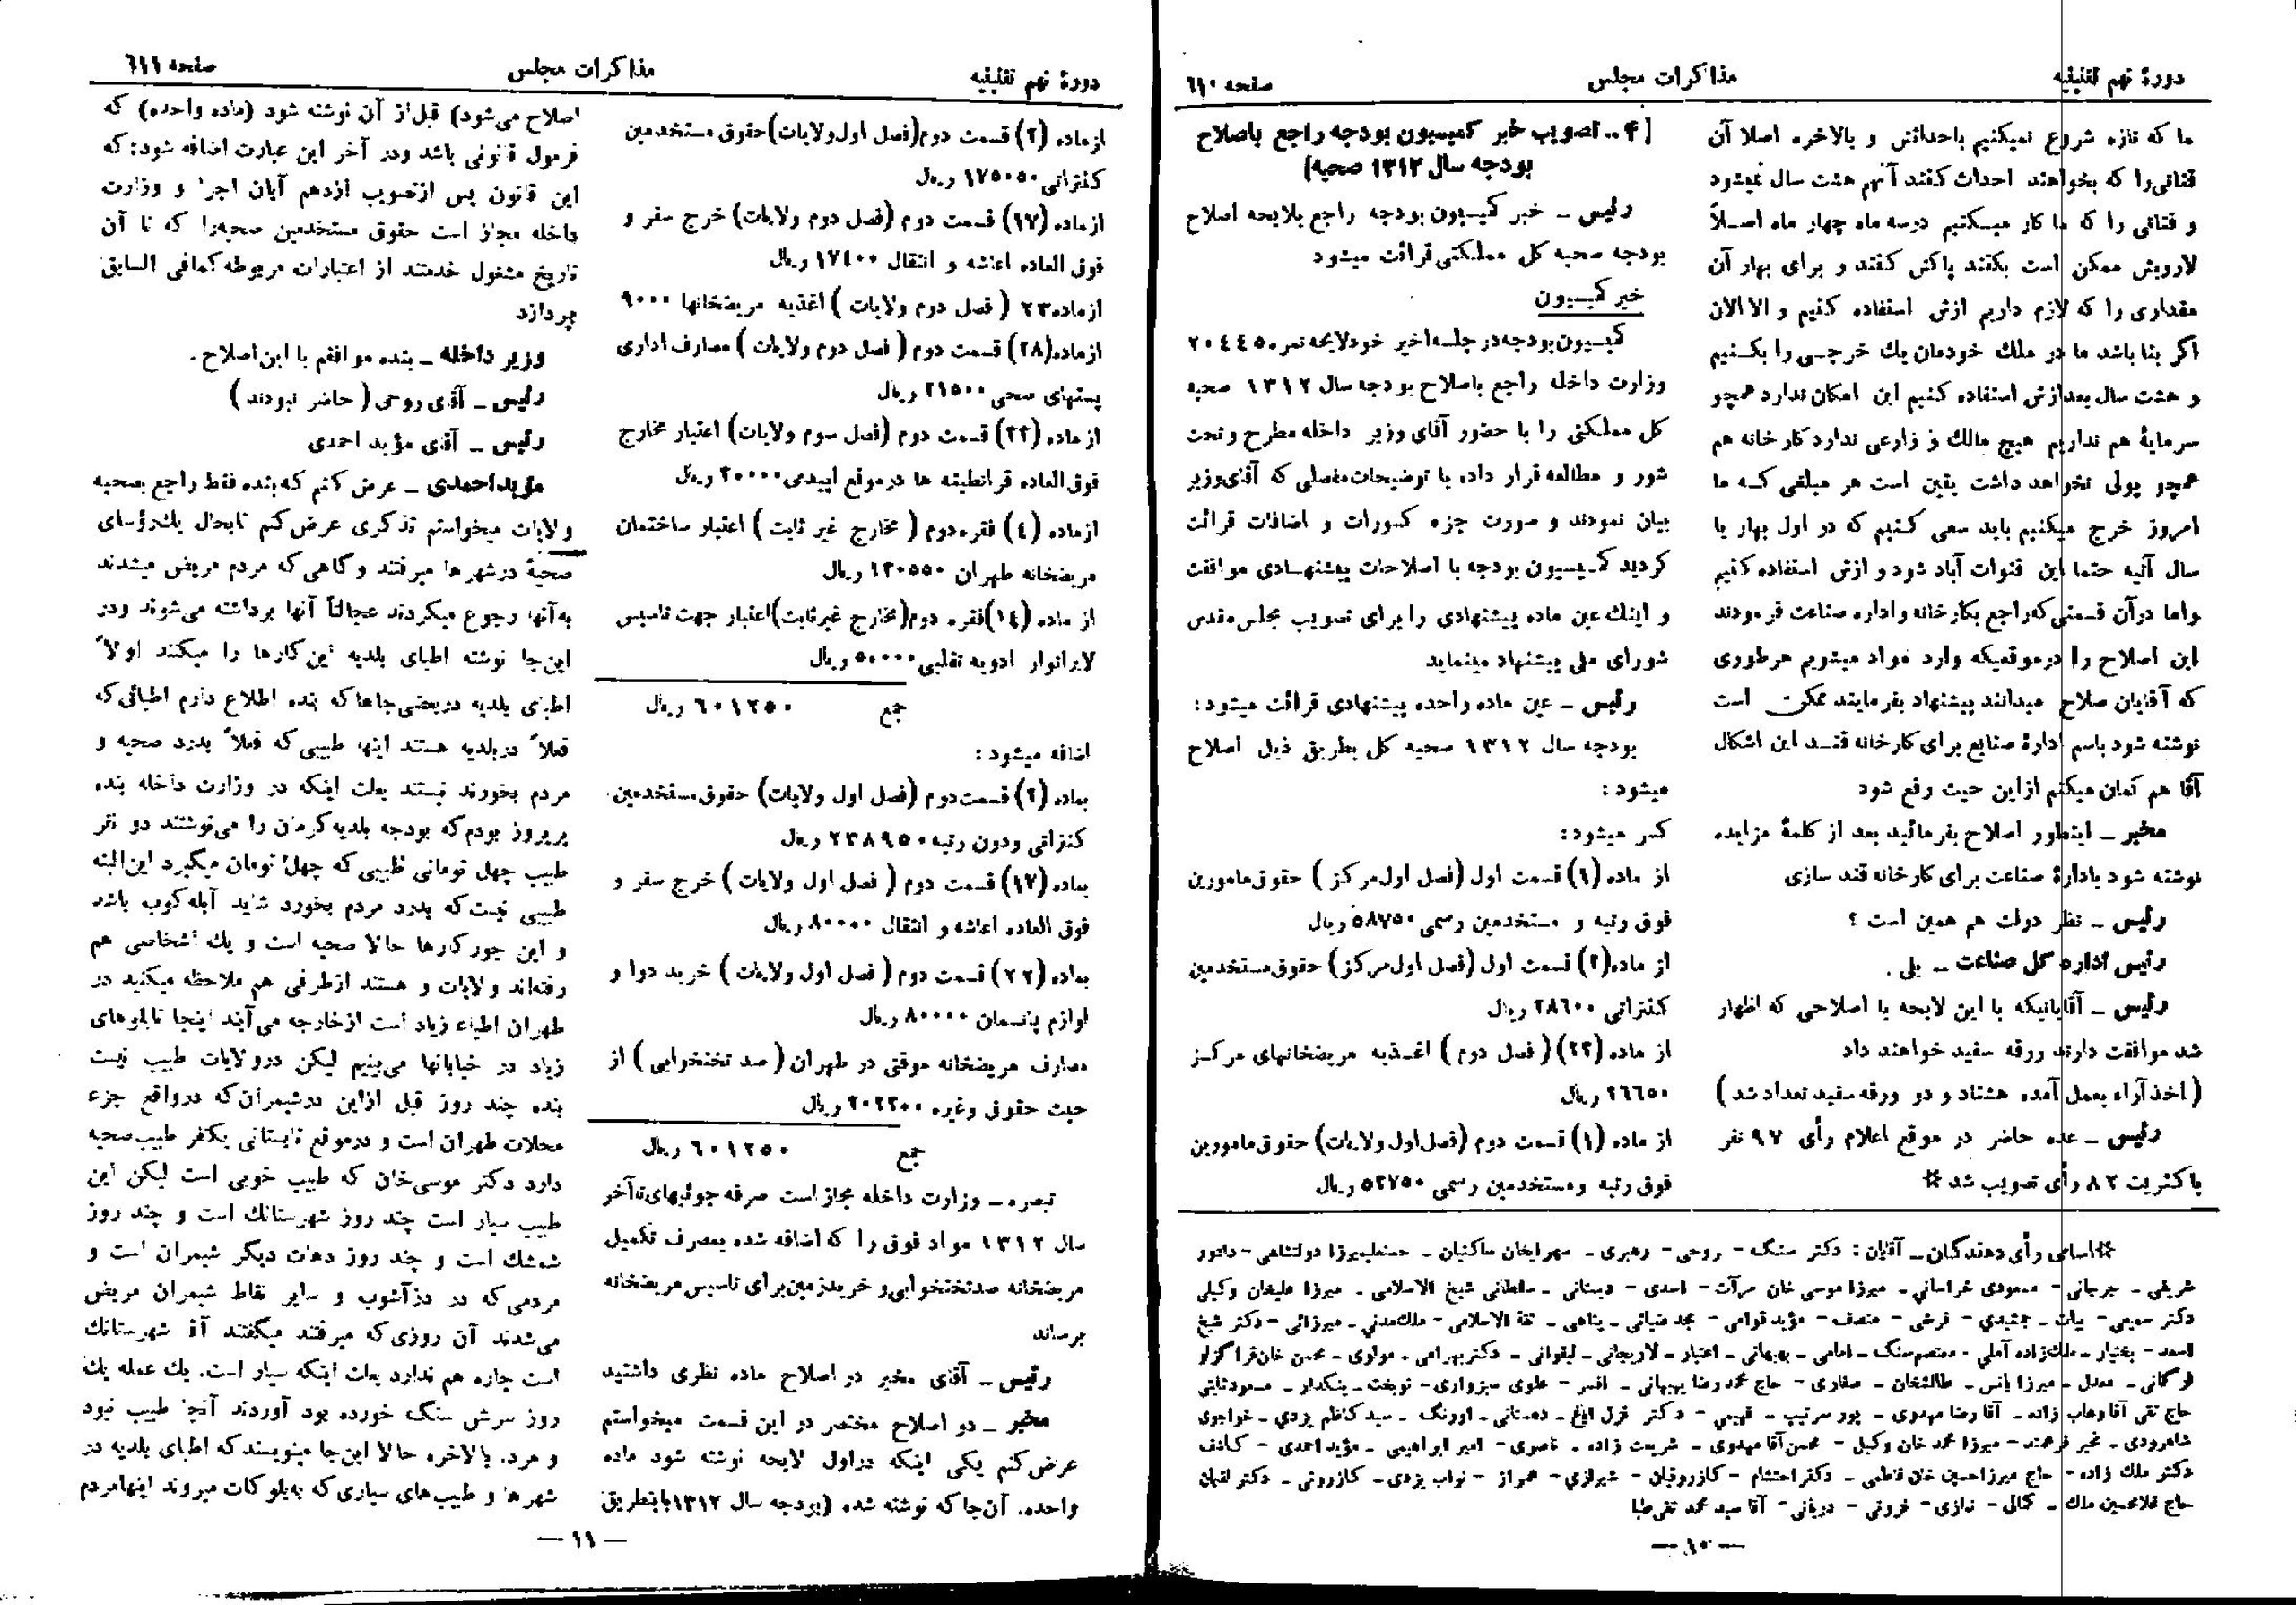 دورهٔ نهم تقنینیه
مذاکرات مجلس
صفحه ٦١٠
ما که تازه شروع نمیکنیم باحداثش و بالاخره اصلا آن
قناتی‌را که بخواهند احداث کنند آنهم هشت سال نمیشود
و قناتی را که ما کار میـکنیم درسه ماه چهار ماه اصـلاً
لاروبش ممکن است بکنند پاکش کنند و برای بهار آن
مقداری را که لازم داریم ازش استفاده کنیم و الا الان
اگر بنا باشد ما در ملك خودمان یك خرجـی را بکـنیم
و هشت سال بعد ازش استفاده کنیم این امکان ندارد همچو
سرمایهٔ هم نداریم هیچ مالك و زارعی ندارد کارخانه هم
همچو پولی نخواهد داشت یقین است هر مبلغی کـه ما
امروز خرج میکنیم باید سعی کـنیم که در اول بهار یا
سال آتیه حتما این قنوات آباد شود و ازش استفاده کنیم
واما درآن قسمتی که راجع بکارخانه و اداره صناعت فرمودند
این اصلاح را درموقعیکه وارد مواد میشویم هرطوری
که آقایان صلاح میدانند پیشنهاد بفرمایند ممکن است
نوشته شود باسم ادارهٔ صنایع برای کارخانه قنـد این اشکال
آقا هم گمان میکنم ازاین حیث رفع شود
مخبر ـ اینطور اصلاح بفرمائید بعد از کلمهٔ مزایده
نوشته شود بادارهٔ صناعت برای کارخانه قند سازی
رئیس ـ نظر دولت هم همین است ؟
رئیس اداره کل صناعت ـ بلی .
رئیس ـ آقایانیکه با این لایحه با اصلاحی که اظهار
شد موافقت دارند ورقه سفید خواهند داد
( اخذ آراء بعمل آمده هشتاد و دو ورقه سفید تعداد شد )
رئیس ـ عده حاضر در موقع اعلام رأی ٩٧ نفر
باکثریت ٨٢ رأی تصویب شد *
[ ۴ ـ تصویب خبر کمیسیون بودجه راجع باصلاح
بودجه سال ١٣١٢ صحیه]
رئیس ـ خبر کمیسیون بودجه راجع بلایحه اصلاح
بودجه صحیه کل مملکتی قرائت میشود
خبر کمیسیون
کمیسیون بودجه در جلسه اخیر خود لایحه نمره ٢٠٤٤٥
وزارت داخله راجع باصلاح بودجه سال ١٣١٢ صحیه
کل مملکتی را با حضور آقای وزیر داخله مطرح و تحت
شور و مطالعه قرار داده با توضیحات مفصلی که آقای وزیر
بیان نمودند و صورت جزء کسورات و اضافات قرائت
گردید کمیسیون بودجه با اصلاحات پیشنهـادی موافقت
و اینك عین ماده پیشنهادی را برای تصویب مجلس مقدس
شورای ملی پیشنهاد مینماید
رئیس ـ عین ماده واحده پیشنهادی قرائت میشود :
بودجه سال ١٣١٢ صحیه کل بطریق ذیل اصلاح
میشود :
کسر میشود :
از ماده (١) قسمت اول (فصل اول مرکز ) حقوق مامورین
فوق رتبه و مستخدمین رسمی ٥٨٧٥٠ ریال
از ماده (٢) قسمت اول (فصل اول مرکز) حقوق مستخدمین
کنتراتی ٢٨٦٠٠ ریال
از ماده (٢٣) ( فصل دوم ) اغـذیه مریضخانهای مرکـز
٢٦٦٥٠ ریال
از ماده (١) قسمت دوم (فصل اول ولایات) حقوق مامورین
فوق رتبه ومستخدمین رسمی ٥٢٧٥٠ ریال
*اسامی رأی دهندگان ـ آقایان : دکتر سنگ - روحی - رهبری - مهرابخان ساگنیان - حسنعلیمیرزا دولتشاهی - داور
شریفی - جرجانی - مسعودی خراسانی - میرزا موسی خان مرآت - اسدی - دبستانی - سلطانی شیخ الاسلامی - میرزا علیخان وکیلی
دکتر سمیعی - بیات - جمشیدی - قرشی - منصف - مؤید قوامی - مجد ضیائی - پناهی - ثقة الاسلامی - ملك‌مدنی - میرزائی - دکتر شیخ
اسعد - بختیار - ملك‌زاده آملی - معتصم سنگ - امامی - بهبهانی - اعتبار - لاریجانی - لیقوانی - دکتر بهرامی - مولوی - محسن خان قراگزلو
اورگانی - معدل - میرزا یانس - طالشخان - صفاری - حاج محمد رضا بهبهانی - افسر - علوی سبزواری - نوبخت - ینکدار - مسعود ثابتی
حاج تقی آقا وهاب زاده - آقا رضا مهدوی - پور سرتیپ - فهیمی - دکتر قزل ایاغ - دهستانی - اورنگ - سید کاظم یزدی - خواجوی
شاهرودی - مخبر فرهمند - میرزا محمد خان وکیل - محسن آقا مهدوی - شریعت زاده - ناصری - امیر ابراهیمی - مؤید احمدی - کاشف
دکتر ملك زاده - حاج میرزا حسین خان فاطمی - دکتر احتشام - کازرونیان - شیرازی - همراز - نواب یزدی - کازرونی - دکتر لقمان
حاج غلامحسین ملك - کمالی - نمازی - ثروتی - دربانی - آقا سید محمد تقی طبا
— ١٠ —
دورهٔ نهم تقنینیه
مذاکرات مجلس
صفحه ٦١١
ازماده (٢) قسمت دوم(فصل اول ولایات)حقوق مستخدمین
کنتراتی ١٧٥٠٥٠ ریال
ازماده (١٧) قسمت دوم (فصل دوم ولایات) خرج سفر و
فوق العاده اعاشه و انتقال ١٧٤٠٠ ریال
ازماده ٢٣ ( فصل دوم ولایات ) اغذیه مریضخانها ٩٠٠٠
ازماده (٢٨) قسمت دوم ( فصل دوم ولایات ) مصارف اداری
پستهای صحی ٢١٥٠٠ ریال
از ماده (٣٣) قسمت دوم (فصل سوم ولایات) اعتبار مخارج
فوق العاده قرانطینه ها درموقع اپیدمی ٢٠٠٠٠ ریال
ازماده (٤) فقره دوم ( مخارج غیر ثابت ) اعتبار ساختمان
مریضخانه طهران ١٣٠٥٥٠ ریال
از ماده (١٤)فقره دوم(مخارج غیرثابت)اعتبار جهت تاسیس
لابراتوار ادویه تقلبی ٥٠٠٠٠ ریال
جمع ٦٠١٢٥٠ ریال
اضافه میشود :
بماده (٢) قسمت دوم (فصل اول ولایات) حقوق مستخدمین
کنتراتی ودون رتبه ٢٣٨٩٥٠ ریال
بماده (١٧) قسمت دوم ( فصل اول ولایات ) خرج سفر و
فوق العاده اعاشه و انتقال ٨٠٠٠٠ ریال
بماده (٢٢) قسمت دوم ( فصل اول ولایات ) خرید دوا و
لوازم پانسمان ٨٠٠٠٠ ریال
مصارف مریضخانه موقتی در طهران ( صد تختخوابی ) از
حیث حقوق وغیره ٢٠٢٣٠٠ ریال
جمع ٦٠١٢٥٠ ریال
تبصره ـ وزارت داخله مجاز است صرفه جوئیهای تاآخر
سال ١٣١٢ مواد فوق را که اضافه شده بمصرف تکمیل
مریضخانه صدتختخوابی و خریدزمین برای تاسیس مریضخانه
برساند
رئیس ـ آقای مخبر در اصلاح ماده نظری داشتید
مخبر ـ دو اصلاح مختصر در این قسمت میخواستم
عرض کنم یکی اینکه دراول لایحه نوشته شود ماده
واحده. آن‌جا که نوشته شده (بودجه سال ١٣١٢ باینطریق
اصلاح می‌شود) قبل از آن نوشته شود (ماده واحده) که
فرمول قانونی باشد ودر آخر این عبارت اضافه شود: که
این قانون پس ازتصویب ازدهم آبان اجرا و وزارت
داخله مجاز است حقوق مستخدمین صحیه‌را که تا آن
تاریخ مشغول خدمتند از اعتبارات مربوطه کمافی السابق
بپردازد
وزیر داخله ـ بنده موافقم با این اصلاح .
رئیس ـ آقای روحی ( حاضر نبودند )
رئیس ـ آقای مؤید احمدی
مؤید احمدی ـ عرض کنم که بنده فقط راجع بصحیه
ولایات میخواستم تذکری عرض کنم تابحال یك‌رؤسای
صحیهٔ درشهر ها میرفتند و گاهی که مردم مریض میشدند
به‌آنها رجوع میکردند عجالتاً آنها برداشته می‌شوند ودر
این‌جا نوشته اطبای بلدیه این کارها را میکنند اولاً
اطبای بلدیه دربعضی جاها که بنده اطلاع دارم اطبائی که
فعلاً در بلدیه هستند اینها طبیبی که فعلاً بدرد صحیه و
مردم بخورند نیستند بعلت اینکه در وزارت داخله بنده
پریروز بودم که بودجه بلدیه کرمان را می‌نوشتند دو نفر
طبیب چهل تومانی طبیبی که چهل تومان میگیرد این البته
طبیبی نیست که بدرد مردم بخورد شاید آبله کوب باشد
و این جور کارها حالا صحیه است و یك اشخاصی هم
رفته‌اند ولایات و هستند ازطرفی هم ملاحظه میکنید در
طهران اطباء زیاد است ازخارجه می‌آیند اینجا تابلوهای
زیاد در خیابانها می‌بینیم لیکن درولایات طبیب نیست
بنده چند روز قبل ازاین درشمیران که درواقع جزء
محلات طهران است و درموقع تابستانی یکنفر طبیب صحیه
دارد دکتر موسی خان که طبیب خوبی است لیکن این
طبیب سیار است چند روز شهرستانك است و چند روز
شمشك است و چند روز دهات دیگر شمیران است و
مردمی که در دزآشوب و سایر نقاط شمیران مریض
می‌شدند آن روزی که میرفتند میگفتند آقا شهرستانك
است چاره هم ندارد بعلت اینکه سیار است. یك عمله یك
روز سرش سنگ خورده بود آوردند آنجا طبیب نبود
و مرد. بالاخره حالا این‌جا مینویسند که اطبای بلدیه در
شهرها و طبیب‌های سیاری که به‌بلوکات میروند اینها مردم
— ١١ —